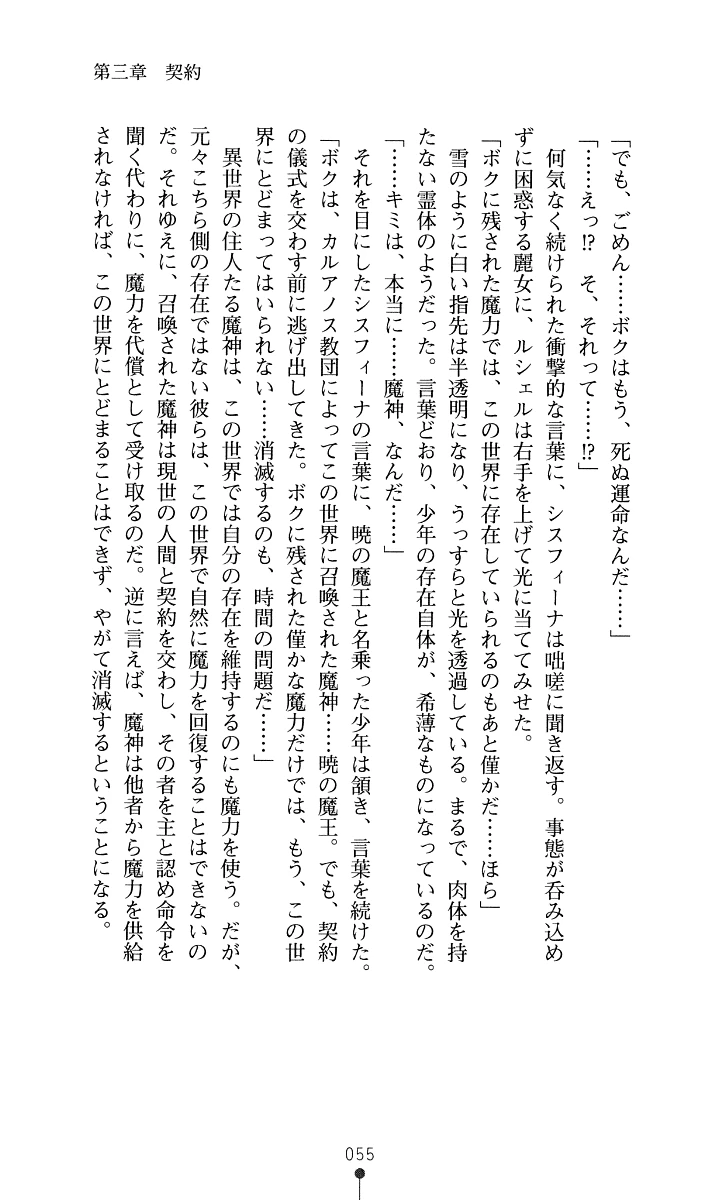 第三章　契約
「でも、ごめん……ボクはもう、死ぬ運命なんだ……」
「……えっ!?　そ、それって……!?」
　何気なく続けられた衝撃的な言葉に、シスフィーナは咄嗟に聞き返す。事態が呑み込め
ずに困惑する麗女に、ルシェルは右手を上げて光に当ててみせた。
「ボクに残された魔力では、この世界に存在していられるのもあと僅かだ……ほら」
　雪のように白い指先は半透明になり、うっすらと光を透過している。まるで、肉体を持
たない霊体のようだった。言葉どおり、少年の存在自体が、希薄なものになっているのだ。
「……キミは、本当に……魔神、なんだ……」
　それを目にしたシスフィーナの言葉に、暁の魔王と名乗った少年は頷き、言葉を続けた。
「ボクは、カルアノス教団によってこの世界に召喚された魔神……暁の魔王。でも、契約
の儀式を交わす前に逃げ出してきた。ボクに残された僅かな魔力だけでは、もう、この世
界にとどまってはいられない……消滅するのも、時間の問題だ……」
　異世界の住人たる魔神は、この世界では自分の存在を維持するのにも魔力を使う。だが、
元々こちら側の存在ではない彼らは、この世界で自然に魔力を回復することはできないの
だ。それゆえに、召喚された魔神は現世の人間と契約を交わし、その者を主と認め命令を
聞く代わりに、魔力を代償として受け取るのだ。逆に言えば、魔神は他者から魔力を供給
されなければ、この世界にとどまることはできず、やがて消滅するということになる。
055